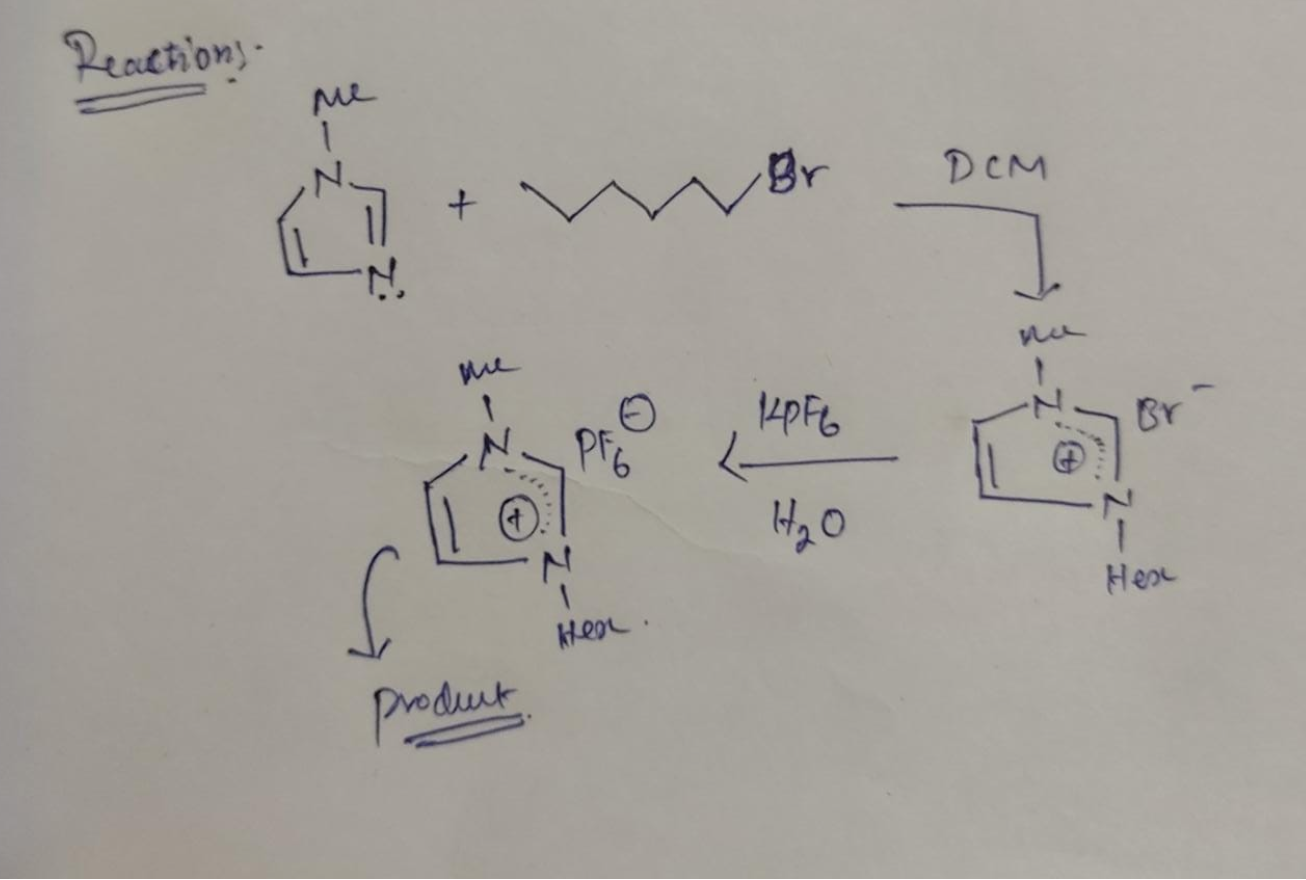 Reactions.
Me
N
N
+
Br
DCM
Me
N
Br⁻
⊕
N
Hex
KPF6
H2O
Me
N
PF6⊖
⊕
N
Hex.
Product.